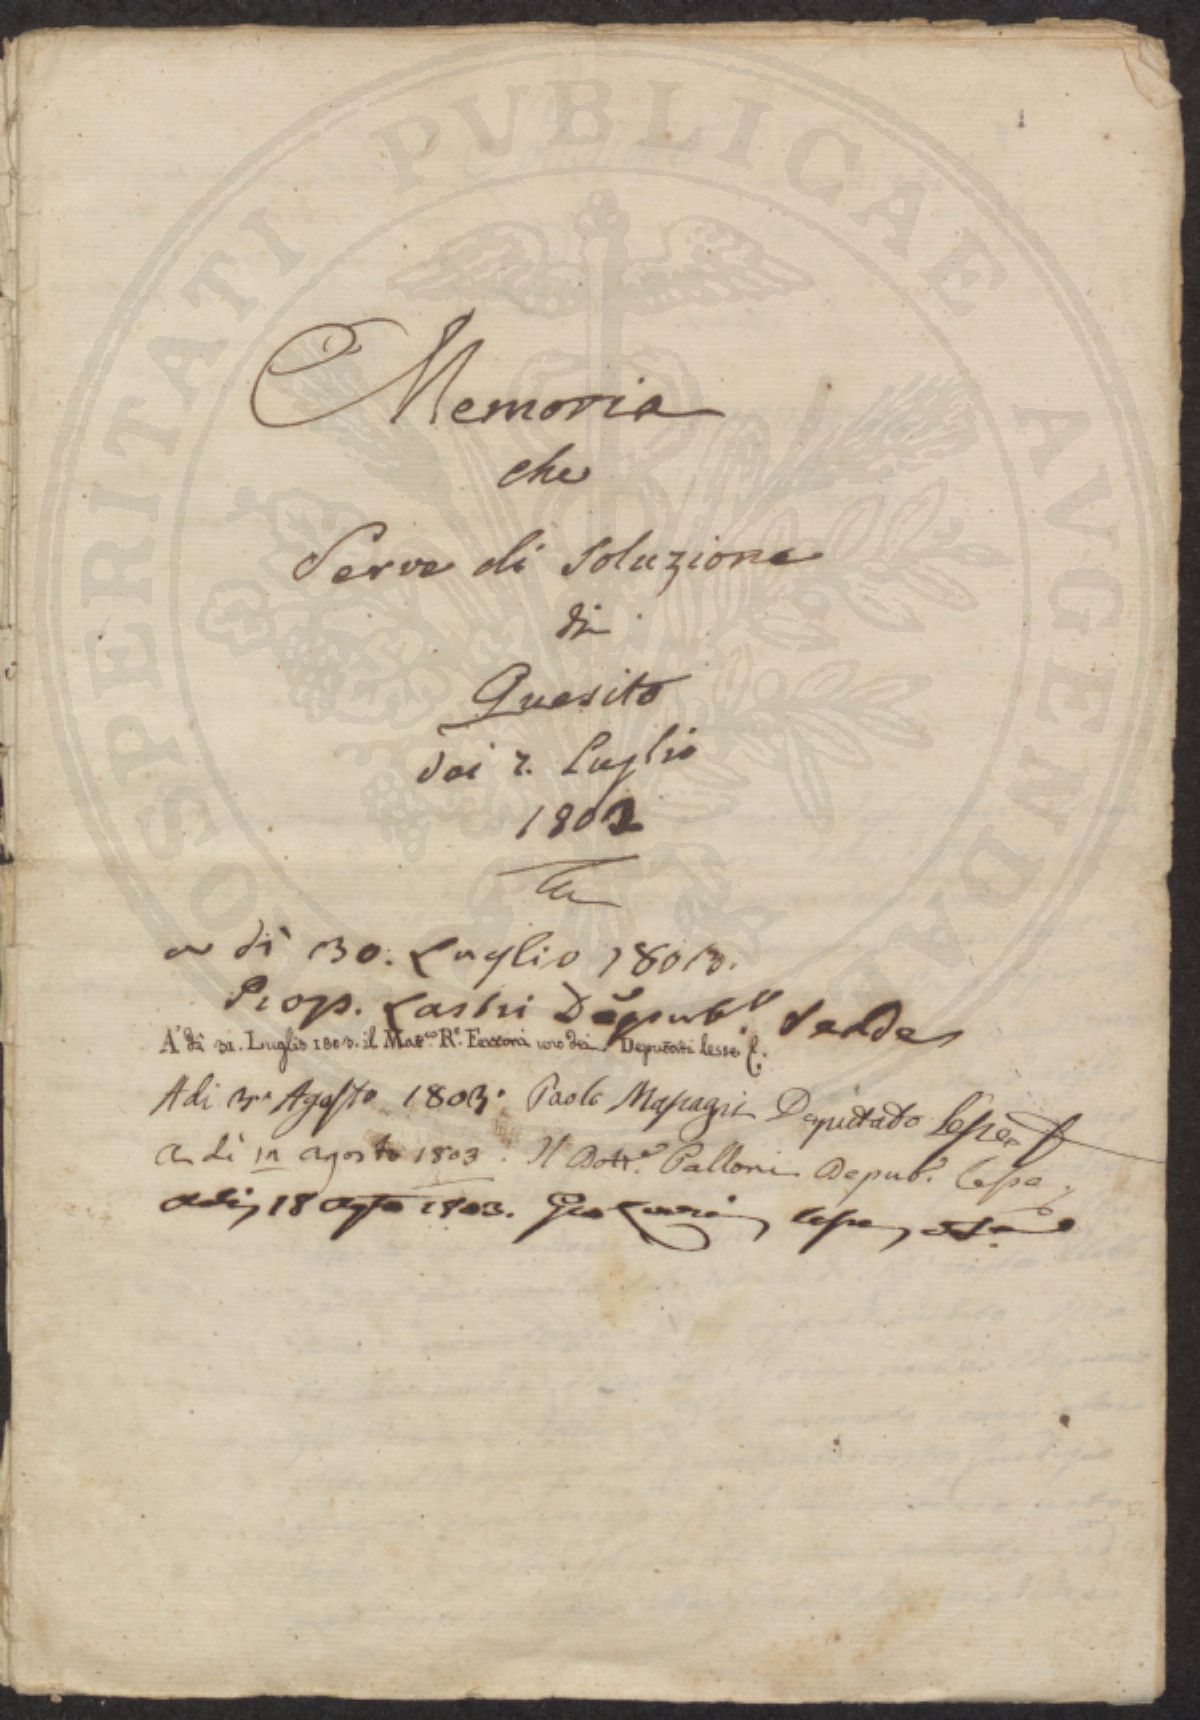 PROSPERITATI PUBLICAE AVGENDAE
1
Memoria
che
Serve di soluzione
di
Quesito
dei 2. Luglio
1802
a di 30. Luglio 1803.
Prop. Lastri Deput.
A di 31. Luglio 1803. il Mat.co R.o Ferroni uno dei Deputati lesse
A di Agosto 1803. Paolo Deputato lesse
a dì 12 agosto 1803. Il Dott.e Palloni Deput. lesse
adì 18 agto 1803. lesse